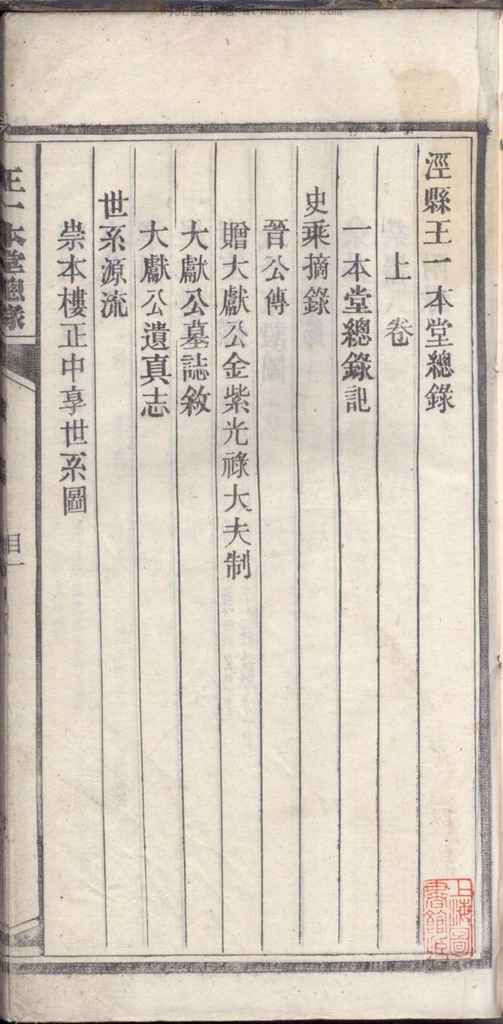 涇縣王一本堂總錄
上卷
一本堂總錄記
史乘摘錄
晉公傳
贈大獻公金紫光祿大夫制
大獻公墓誌敘
大獻公遺真志
世系源流
崇本樓正中享世系圖
王一本堂總錄
目一
上海圖
書館